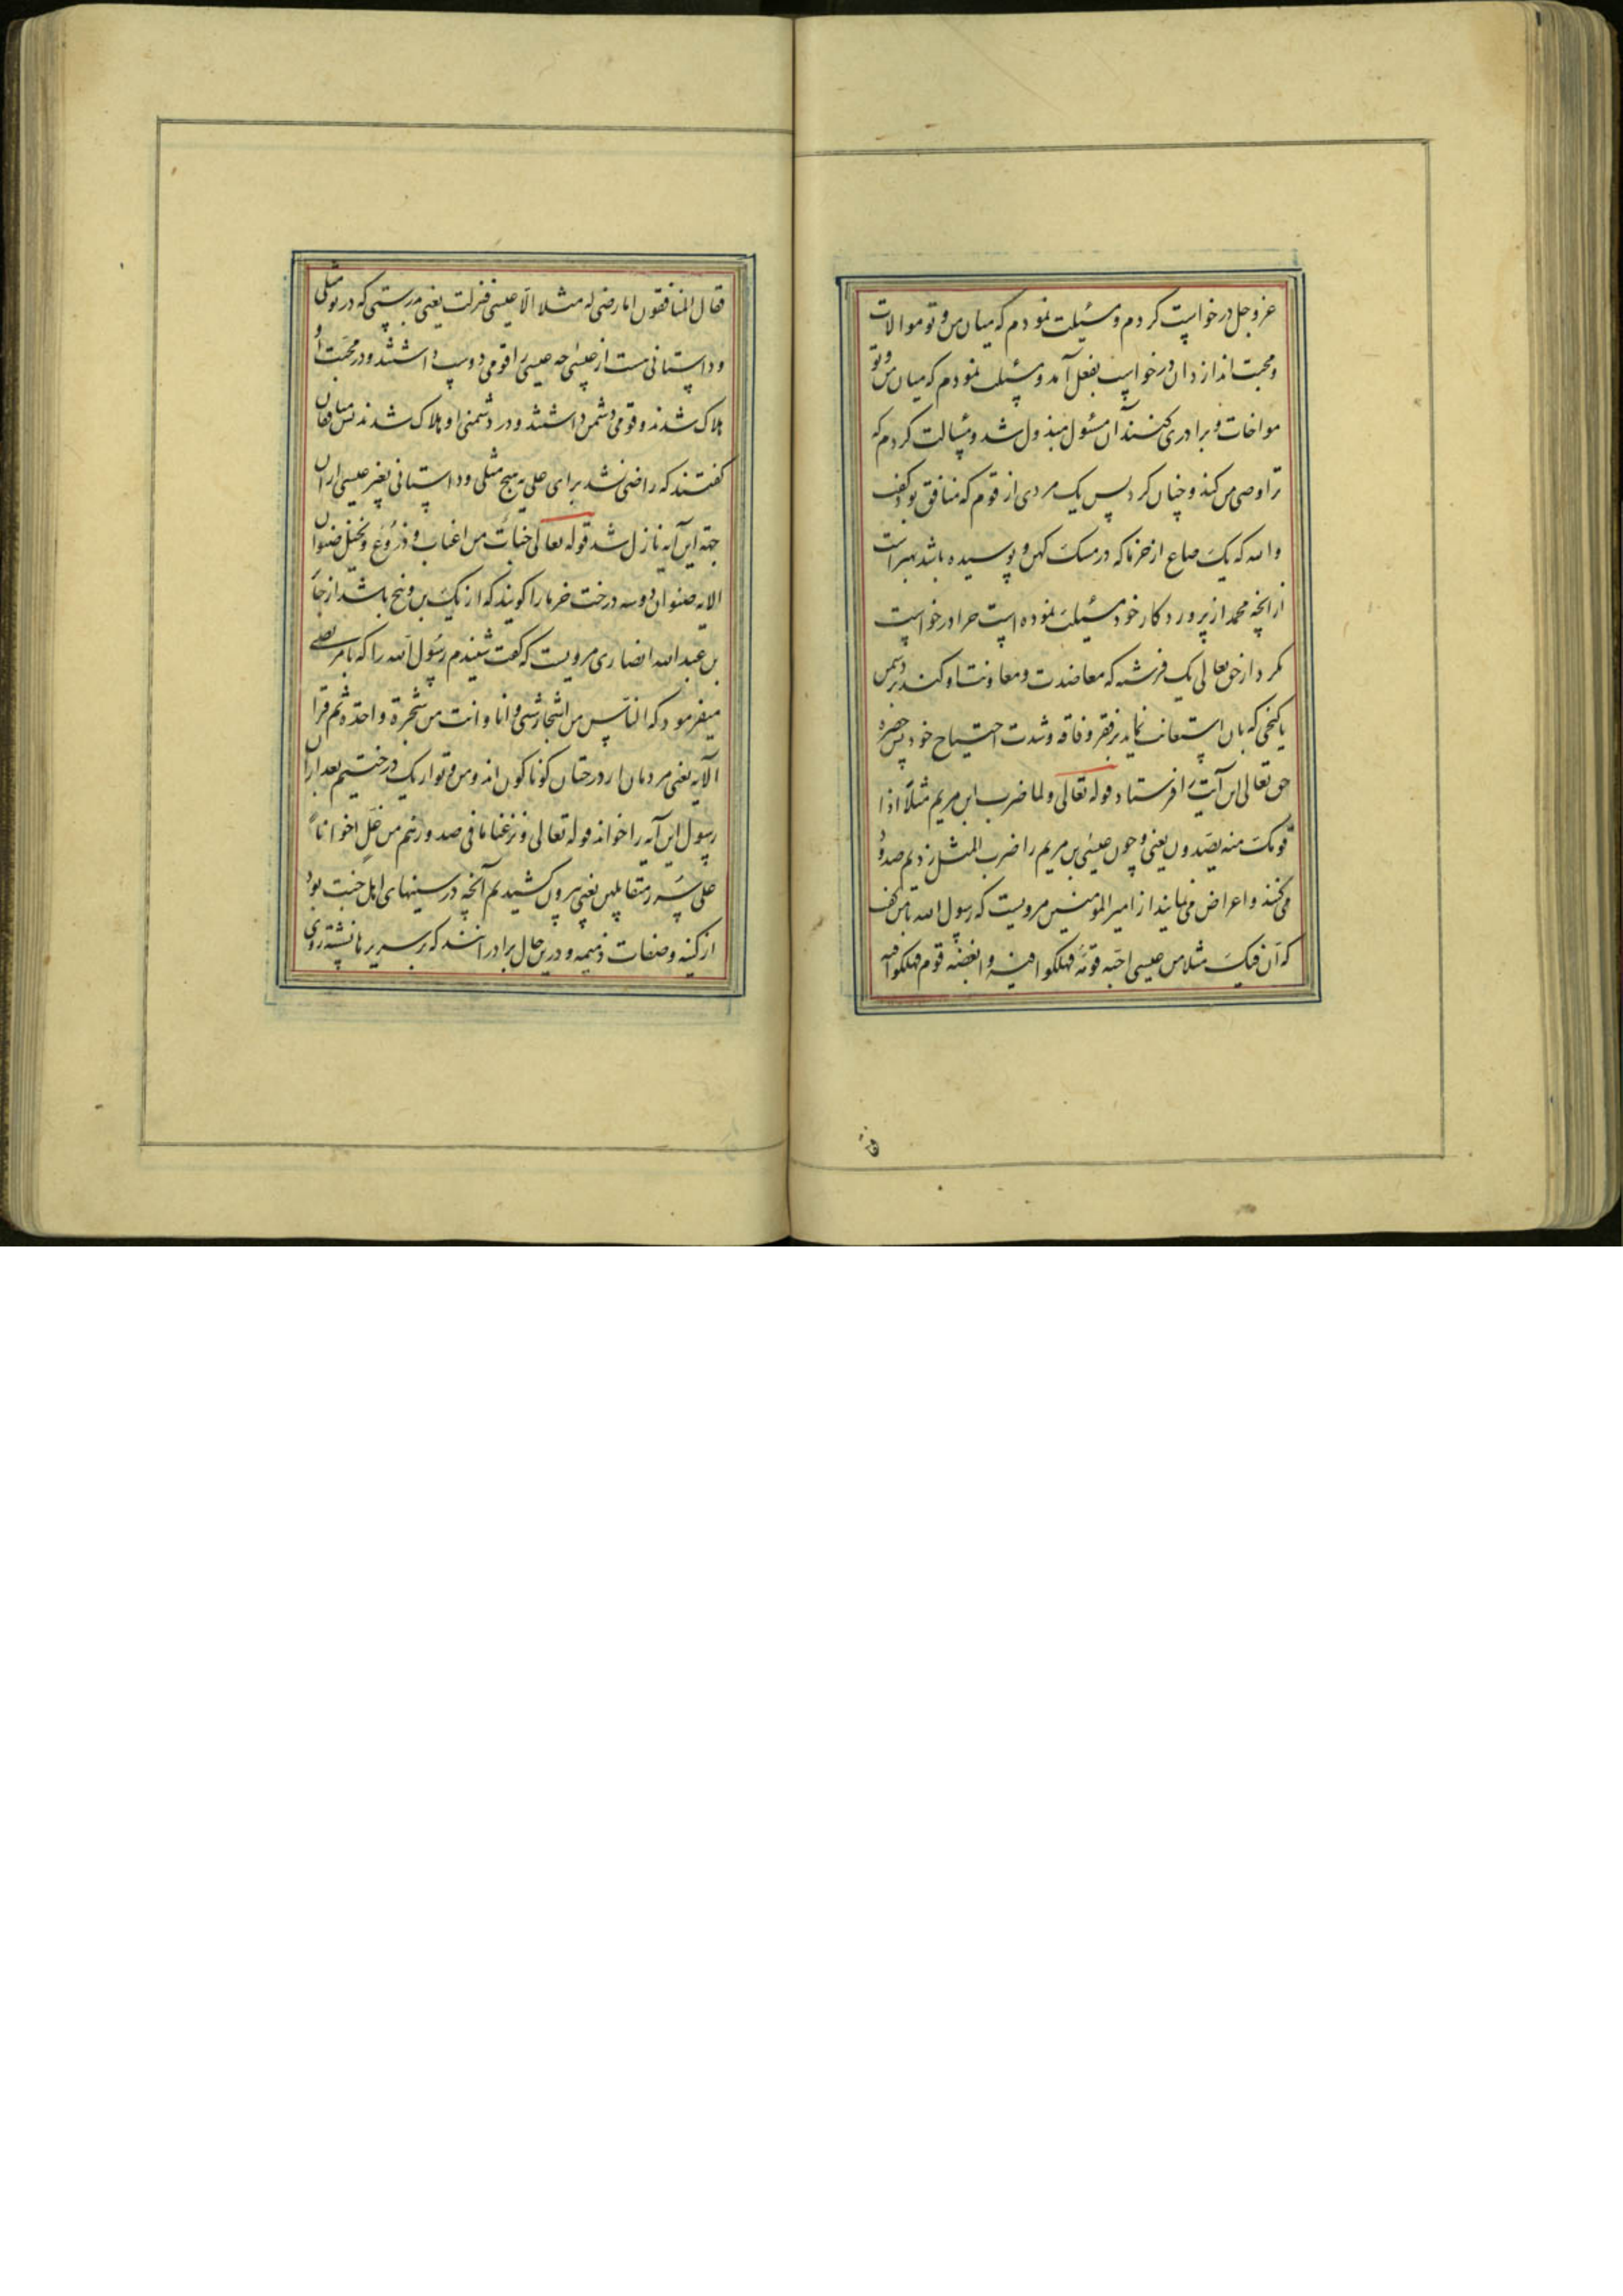 عزوجل درخواست کردم و مسئلت نمودم که میان من و تو موالات
و محبت اندازد ان درخواست بفعل آمد و مسئلت نمودم که میان من و تو
مواخات و برادری کنند آن مسئول مبذول شد و مسالت کردم که
ترا وصی من کند و چنان کرد پس یک مردی از قوم که منافق بود گفت
والله که یک صاع از خرما که در مشک کهن و پوسیده باشد بهتر است
از آنچه محمد از پروردکار خود مسئلت نموده است چرا درخواست
نکرد از حق تعالی یک فرشته که معاضدت و معاونت او کند بر دشمن
یا کنجی که بان استعانت نماید بر فقر و فاقه و شدت احتیاج خود پس حضرة
حق تعالی این آیت را فرستاد قوله تعالی ولما ضرب ابن مریم مثلاً اذا
قومک منه یصدون یعنی و چون عیسی بن مریم را ضرب المثل زدیم صدود
می کنند و اعراض می نمایند از امیر المومنین مرویست که رسول الله با من گفت
که ان فیک مثلا من عیسی احبه قومٌ فهلکوا فیه و ابغضه قوم فهلکوا فیه
فقا
فقال المنافقون اما رضی له مثلا الا عیسی فنزلت یعنی بدرستی که در تو مثلی
و داستانی هست از عیسی چه عیسی را قومی دوست داشتند و در محبت او
هلاک شدند و قومی دشمن داشتند و در دشمنی او هلاک شدند پس منافقان
گفتند که راضی نشد برای علی به هیچ مثلی و داستانی بغیر عیسی ازان
جهة این آیه نازل شد قوله تعالی جنات من اعناب و زروع و نخیل صنوان
الایه صنوان دو سه درخت خرما را کویند که از یک بن و بیخ باشد از جابر
بن عبد الله انصاری مرویست که گفت شنیدم رسول الله را که با مرتضی
میفرمود که الناس من اشجار شتی و انا و انت من شجرة واحدة ثم قرا
الآیه یعنی مردمان از درختان کوناکون اند و من و تو از یک درختیم بعد ازان
رسول این آیه را خواند قوله تعالی و نزعنا ما فی صدورهم من غل اخوانا
علی سرر متقابلین یعنی بیرون کشیدیم آنچه در سینهای اهل جنت بود
از کینه و صفات ذمیمه و درین حال برادرانند که بر سریرها نشسته روی